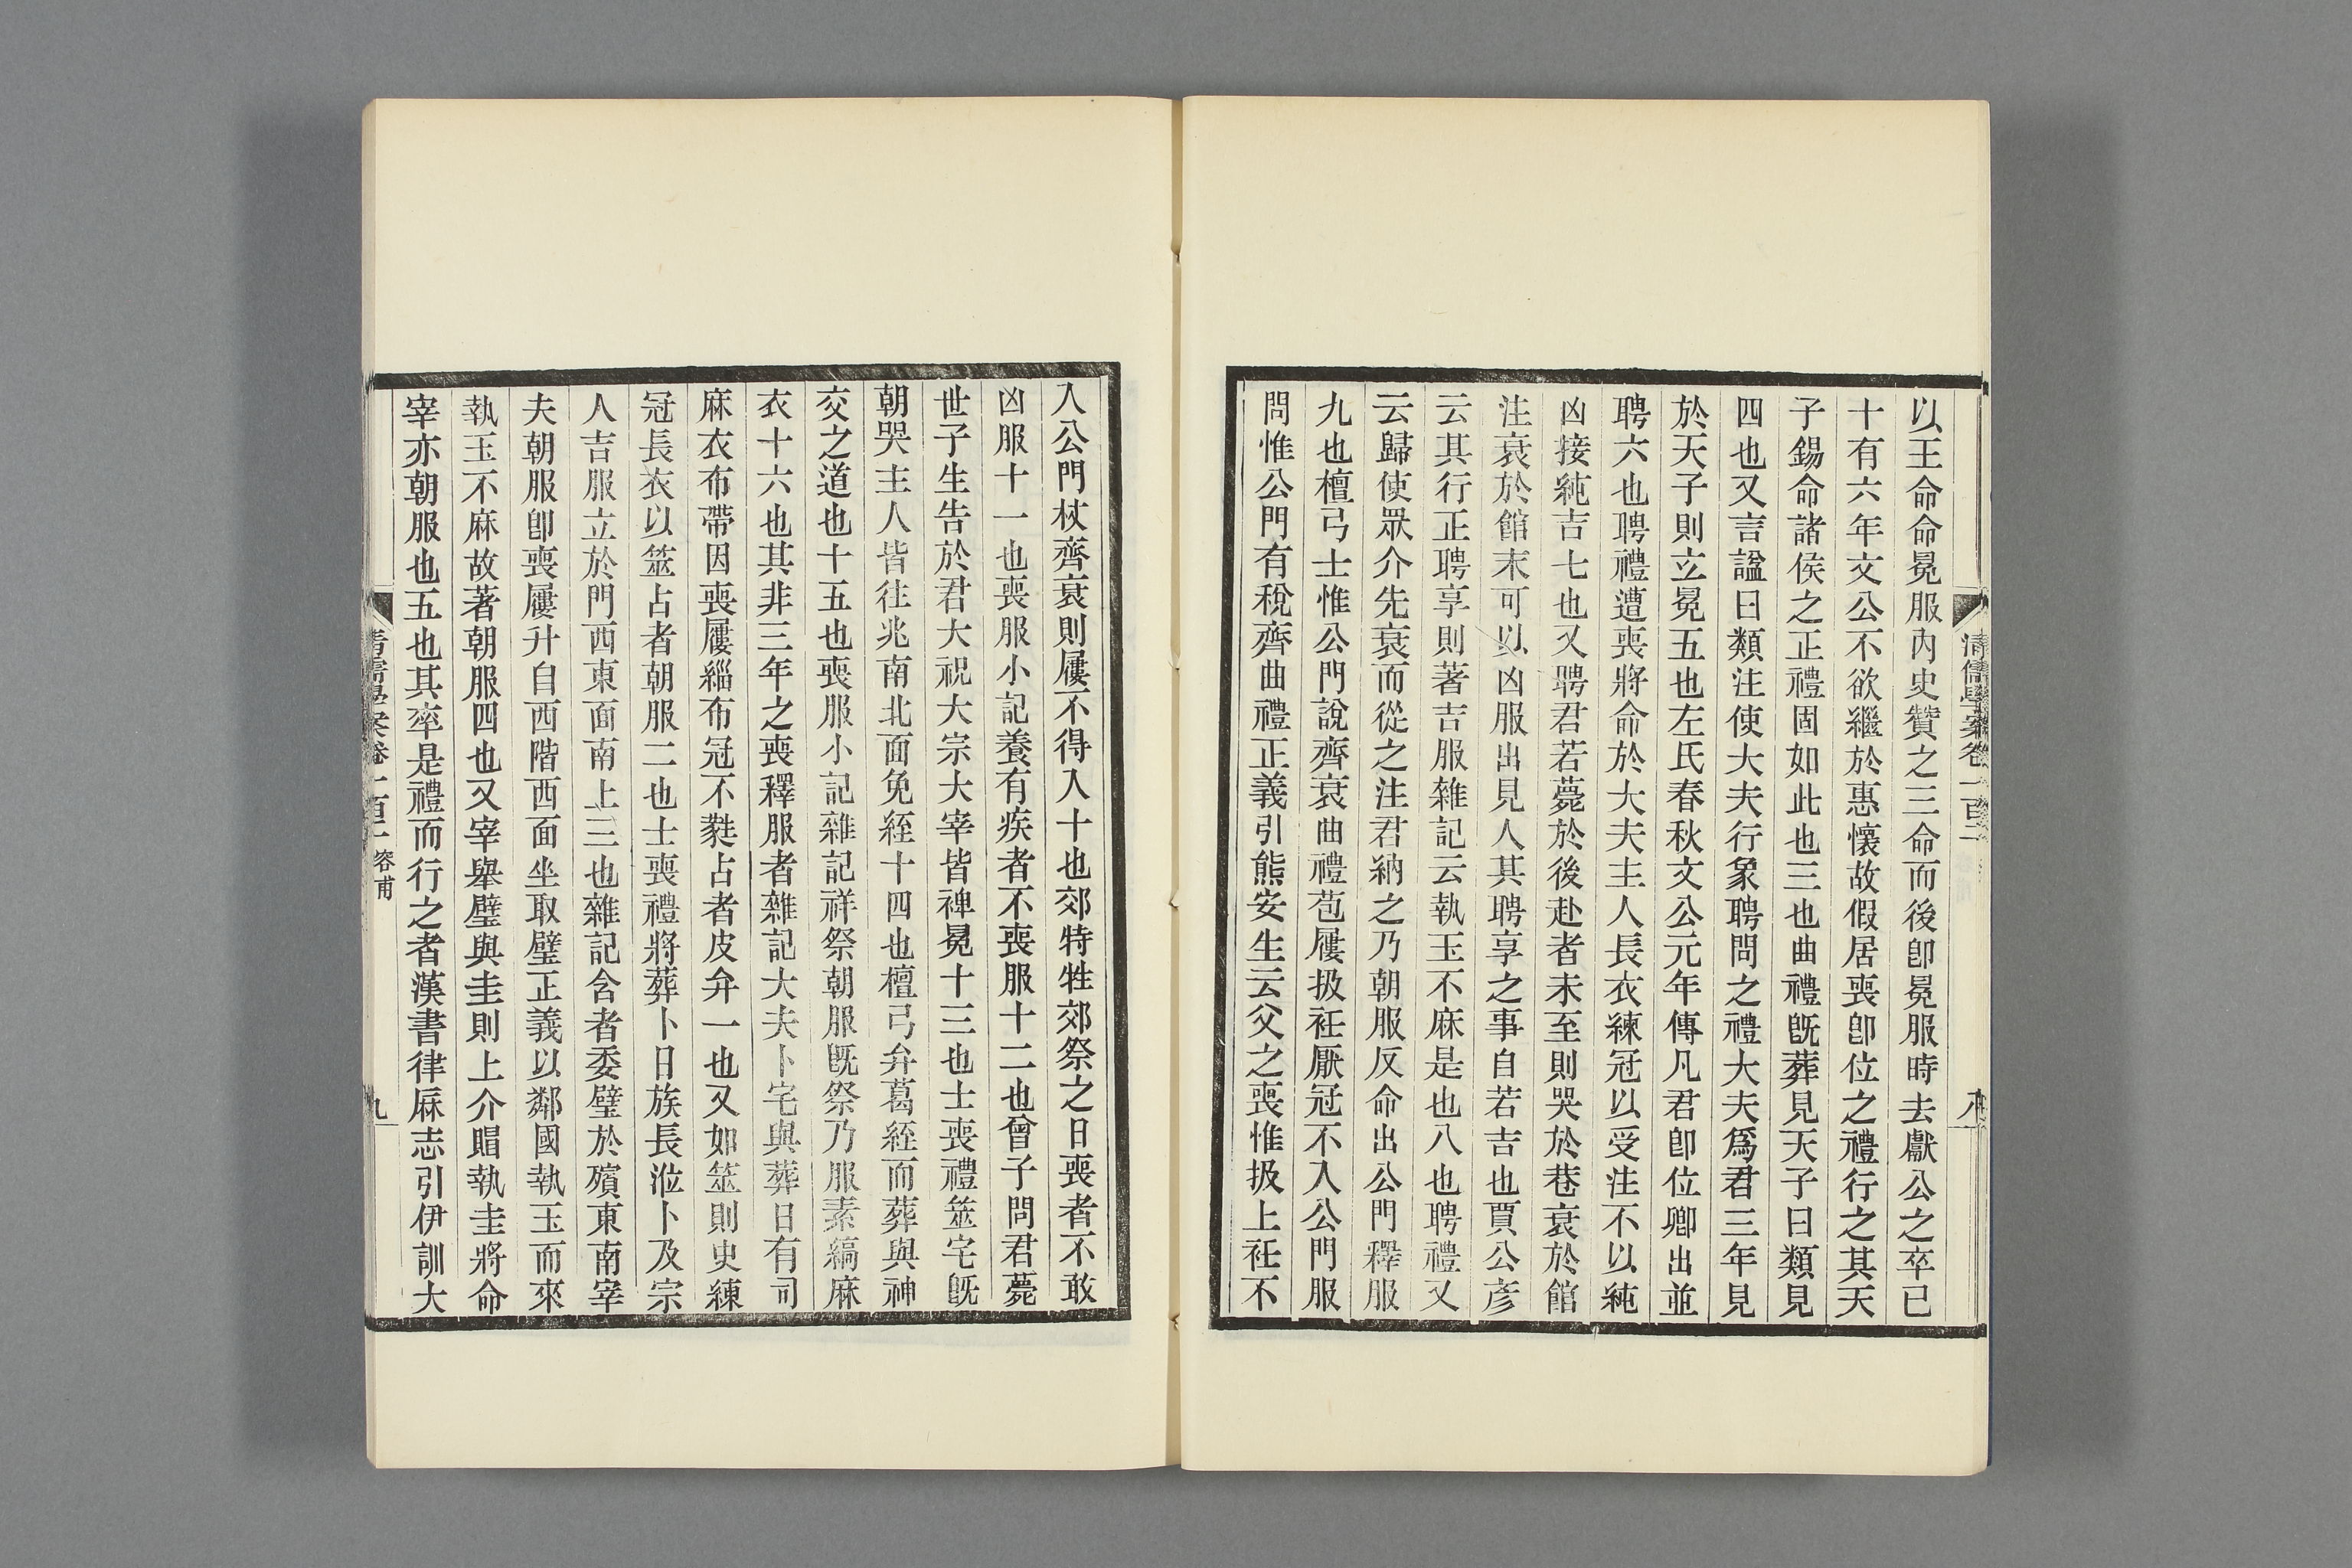 以王命命冕服內史贊之三命而後卽冕服時去獻公之卒已
十有六年文公不欲繼於惠懷故假居喪卽位之禮行之其天
子錫命諸侯之正禮固如此也三也曲禮旣葬見天子曰類見
四也又言諡曰類注使大夫行象聘問之禮大夫爲君三年見
於天子則立冕五也左氏春秋文公元年傳凡君卽位卿出並
聘六也聘禮遭喪將命於大夫主人長衣練冠以受注不以純
凶接純吉七也又聘君若薨於後赴者未至則哭於巷衰於館
注衰於館未可以凶服出見人其聘享之事自若吉也賈公彥
云其行正聘享則著吉服雜記云執玉不麻是也八也聘禮又
云歸使眾介先衰而從之注君納之乃朝服反命出公門釋服
九也檀弓士惟公門說齊衰曲禮苞屨扱衽厭冠不入公門服
問惟公門有稅齊曲禮正義引熊安生云父之喪惟扱上衽不
清儒學案卷一百二
八
入公門杖齊衰則屨不得入十也郊特牲郊祭之日喪者不敢
凶服十一也喪服小記養有疾者不喪服十二也曾子問君薨
世子生告於君大祝大宗大宰皆裨冕十三也士喪禮筮宅旣
朝哭主人皆往兆南北面免絰十四也檀弓弁葛絰而葬與神
交之道也十五也喪服小記雜記祥祭朝服旣祭乃服素縞麻
衣十六也其非三年之喪釋服者雜記大夫卜宅與葬日有司
麻衣布帶因喪屨緇布冠不蕤占者皮弁一也又如筮則史練
冠長衣以筮占者朝服二也士喪禮將葬卜日族長涖卜及宗
人吉服立於門西東面南上三也雜記含者委璧於殯東南宰
夫朝服卽喪屨升自西階西面坐取璧正義以鄰國執玉而來
執玉不麻故著朝服四也又宰舉璧與圭則上介賵執圭將命
宰亦朝服也五也其率是禮而行之者漢書律厤志引伊訓大
清儒學案卷一百二　容甫
九